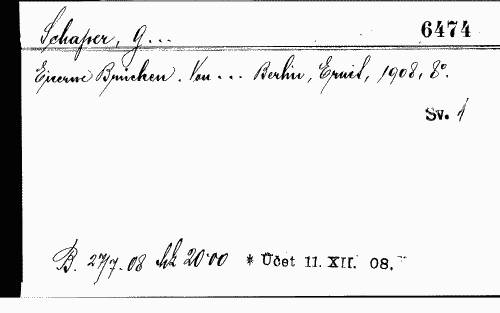 Schaper, G... 6474
Eiserne Brücken. Von ... Berlin, Ernst, 1908, 8°.
Sv. 1
B. 27/7.08 20·00 * Účet 11. XII. 08.